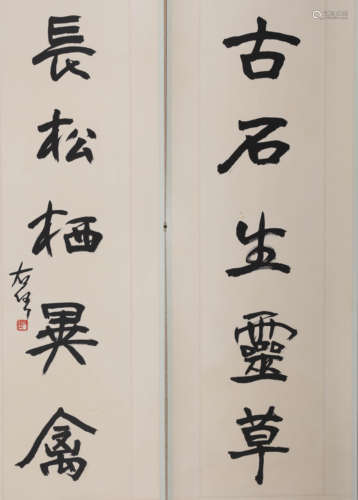 古石生靈草
長松栖異禽
右任